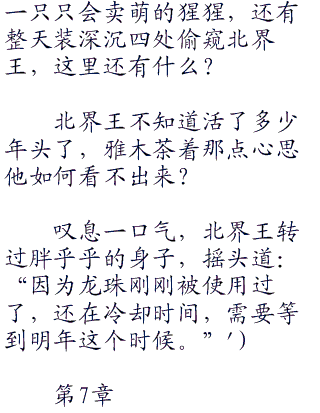 一只只会卖萌的猩猩，还有
整天装深沉四处偷窥北界
王，这里还有什么？
北界王不知道活了多少
年头了，雅木茶着那点心思
他如何看不出来？
叹息一口气，北界王转
过胖乎乎的身子，摇头道：
“因为龙珠刚刚被使用过
了，还在冷却时间，需要等
到明年这个时候。”′)
第7章